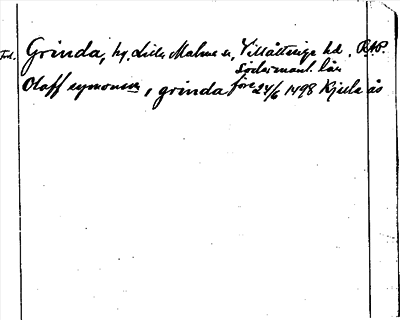 Grinda, hg. Lida Malma sn, Villåttinge hd. RAP.
Södermanl. län
Oloff symonson, grinda före 24/6 1498 Kjula ås